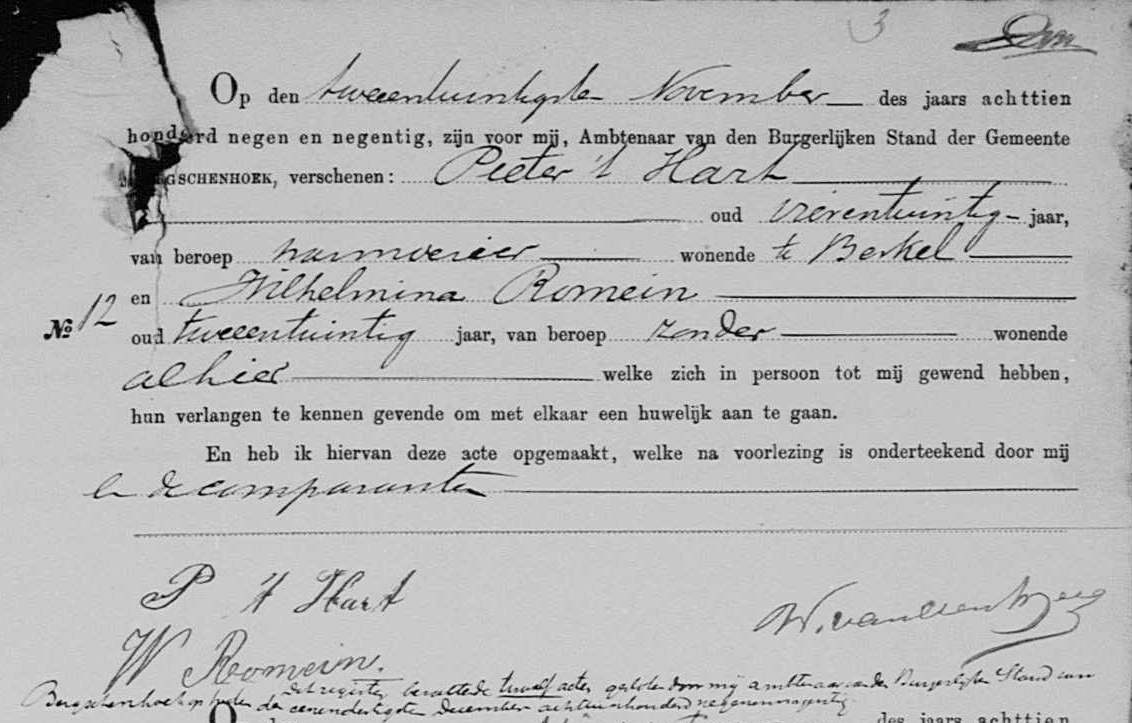 3
Op den tweeentwintigste November des jaars achttien
honderd negen en negentig, zijn voor mij, Ambtenaar van den Burgerlijken Stand der Gemeente
GSCHENHOEK, verschenen: Pieter 't Hart
oud vierentwintig jaar,
van beroep wonende te Berkel
en Wilhelmina Romein
No 12
oud tweeentwintig jaar, van beroep zonder wonende
alhier welke zich in persoon tot mij gewend hebben,
hun verlangen te kennen gevende om met elkaar een huwelijk aan te gaan.
En heb ik hiervan deze acte opgemaakt, welke na voorlezing is onderteekend door mij
en de comparanten
P 't Hart
W. van den Berg
W Romein.
Dit register bevattende twaalf acten gesloten door mij ambtenaar van den Burgerlijken Stand van
Bergschenhoek op heden den eenendertigsten December achttienhonderd negenennegentig.
O des jaars achttien